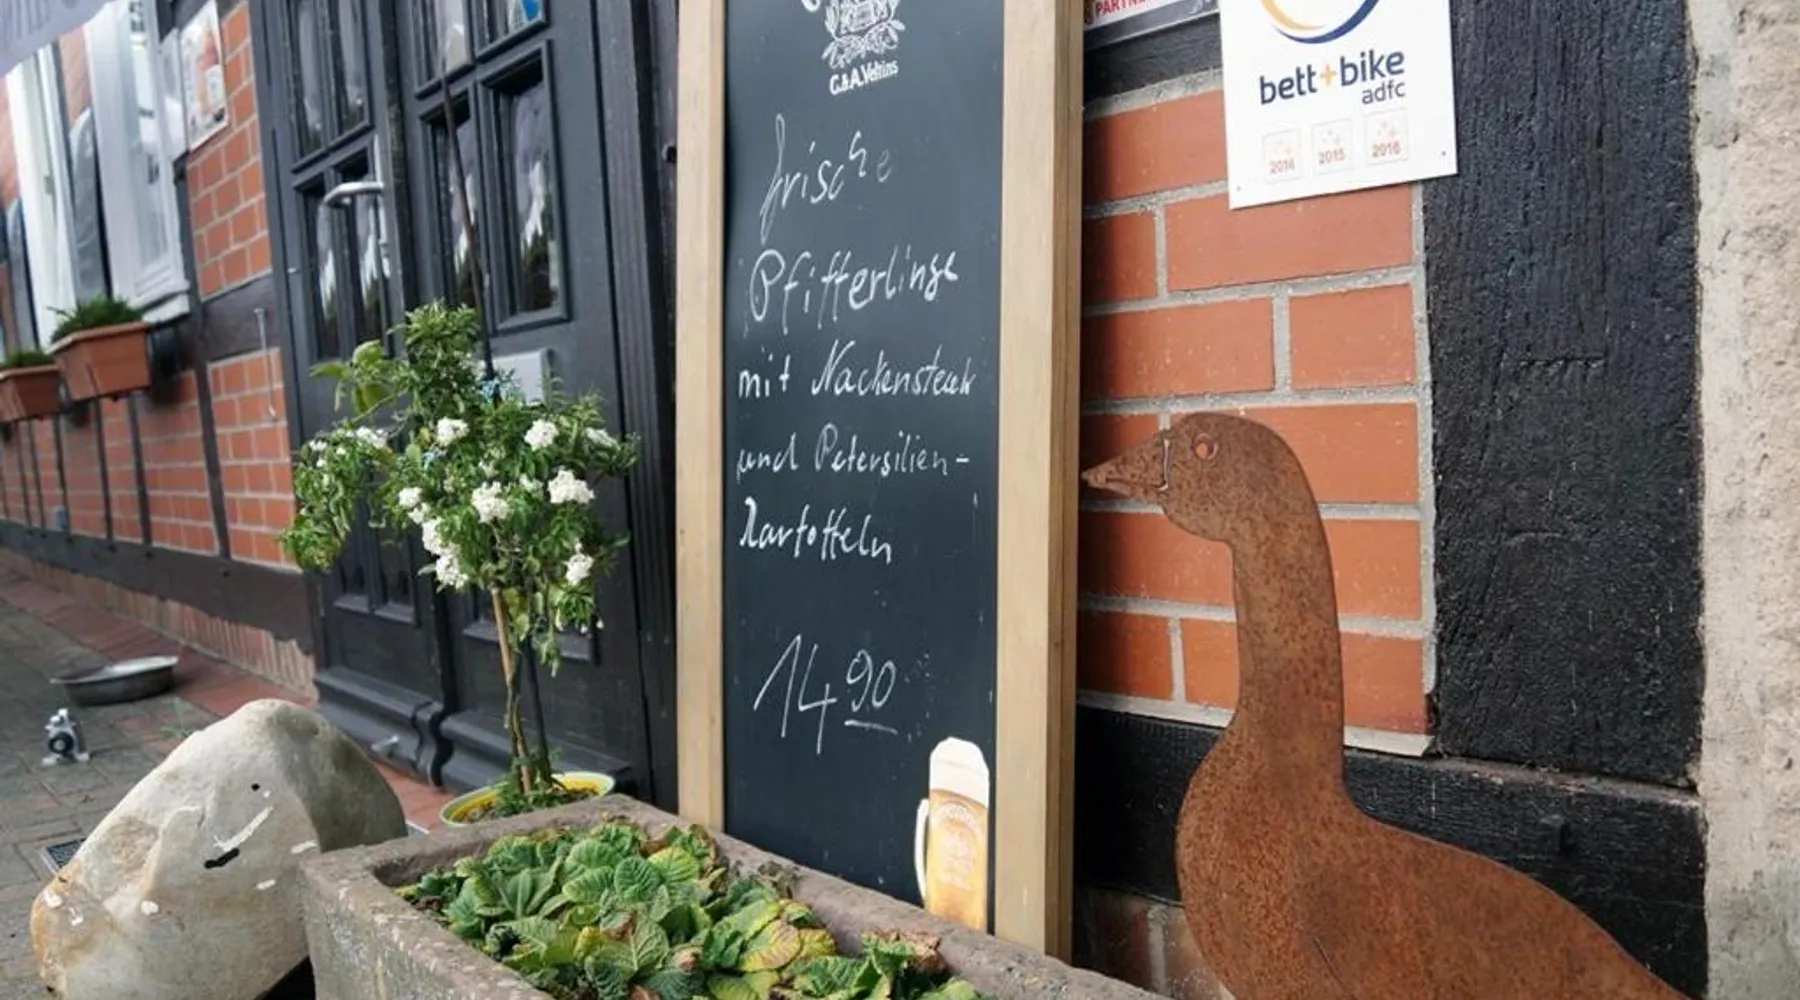 C.&A. Veltins
frische
Pfifferlinge
mit Nackensteak
und Petersilien-
Kartoffeln
14 90
PARTNE
bett+bike
adfc
2014 2015 2016